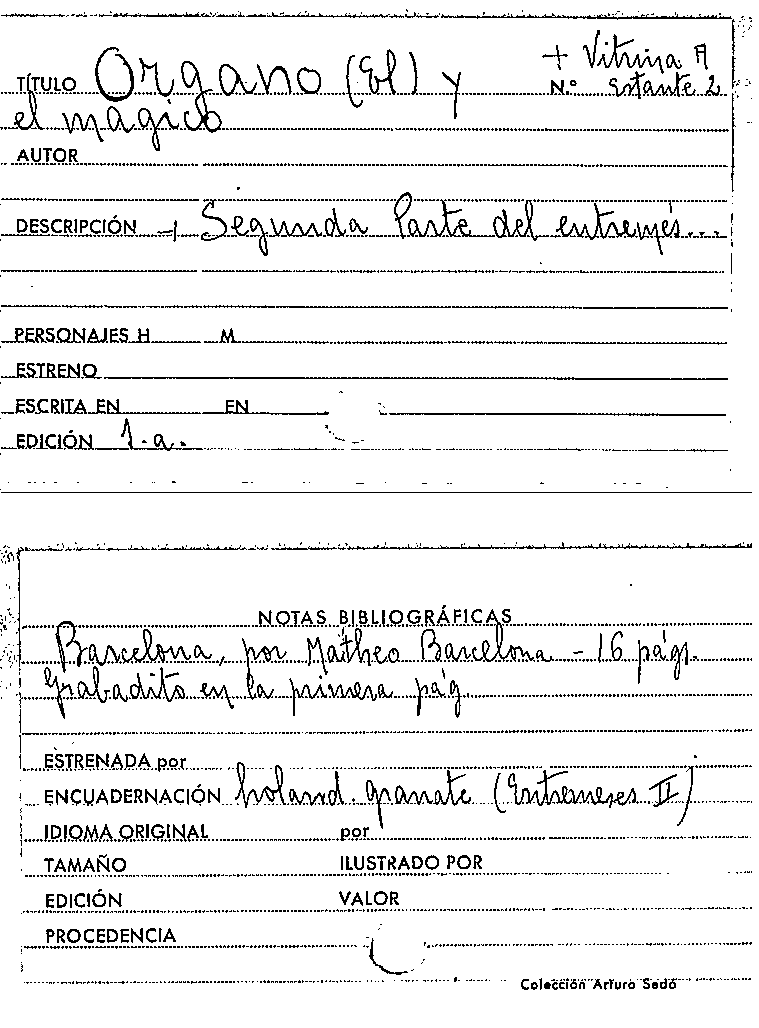 TÍTULO Organo (El) y + Vitrina A
el magico N.º Estante 2
AUTOR
DESCRIPCIÓN - Segunda Parte del entremés...
PERSONAJES H M
ESTRENO
ESCRITA EN EN
EDICIÓN 1.a.
NOTAS BIBLIOGRÁFICAS
Barcelona, por Matheo Barcelona - 16 págs.
Grabadito en la primera pág.
ESTRENADA por
ENCUADERNACIÓN holand. granate (Entremeses II)
IDIOMA ORIGINAL por
TAMAÑO ILUSTRADO POR
EDICIÓN VALOR
PROCEDENCIA
Colección Arturo Sedó